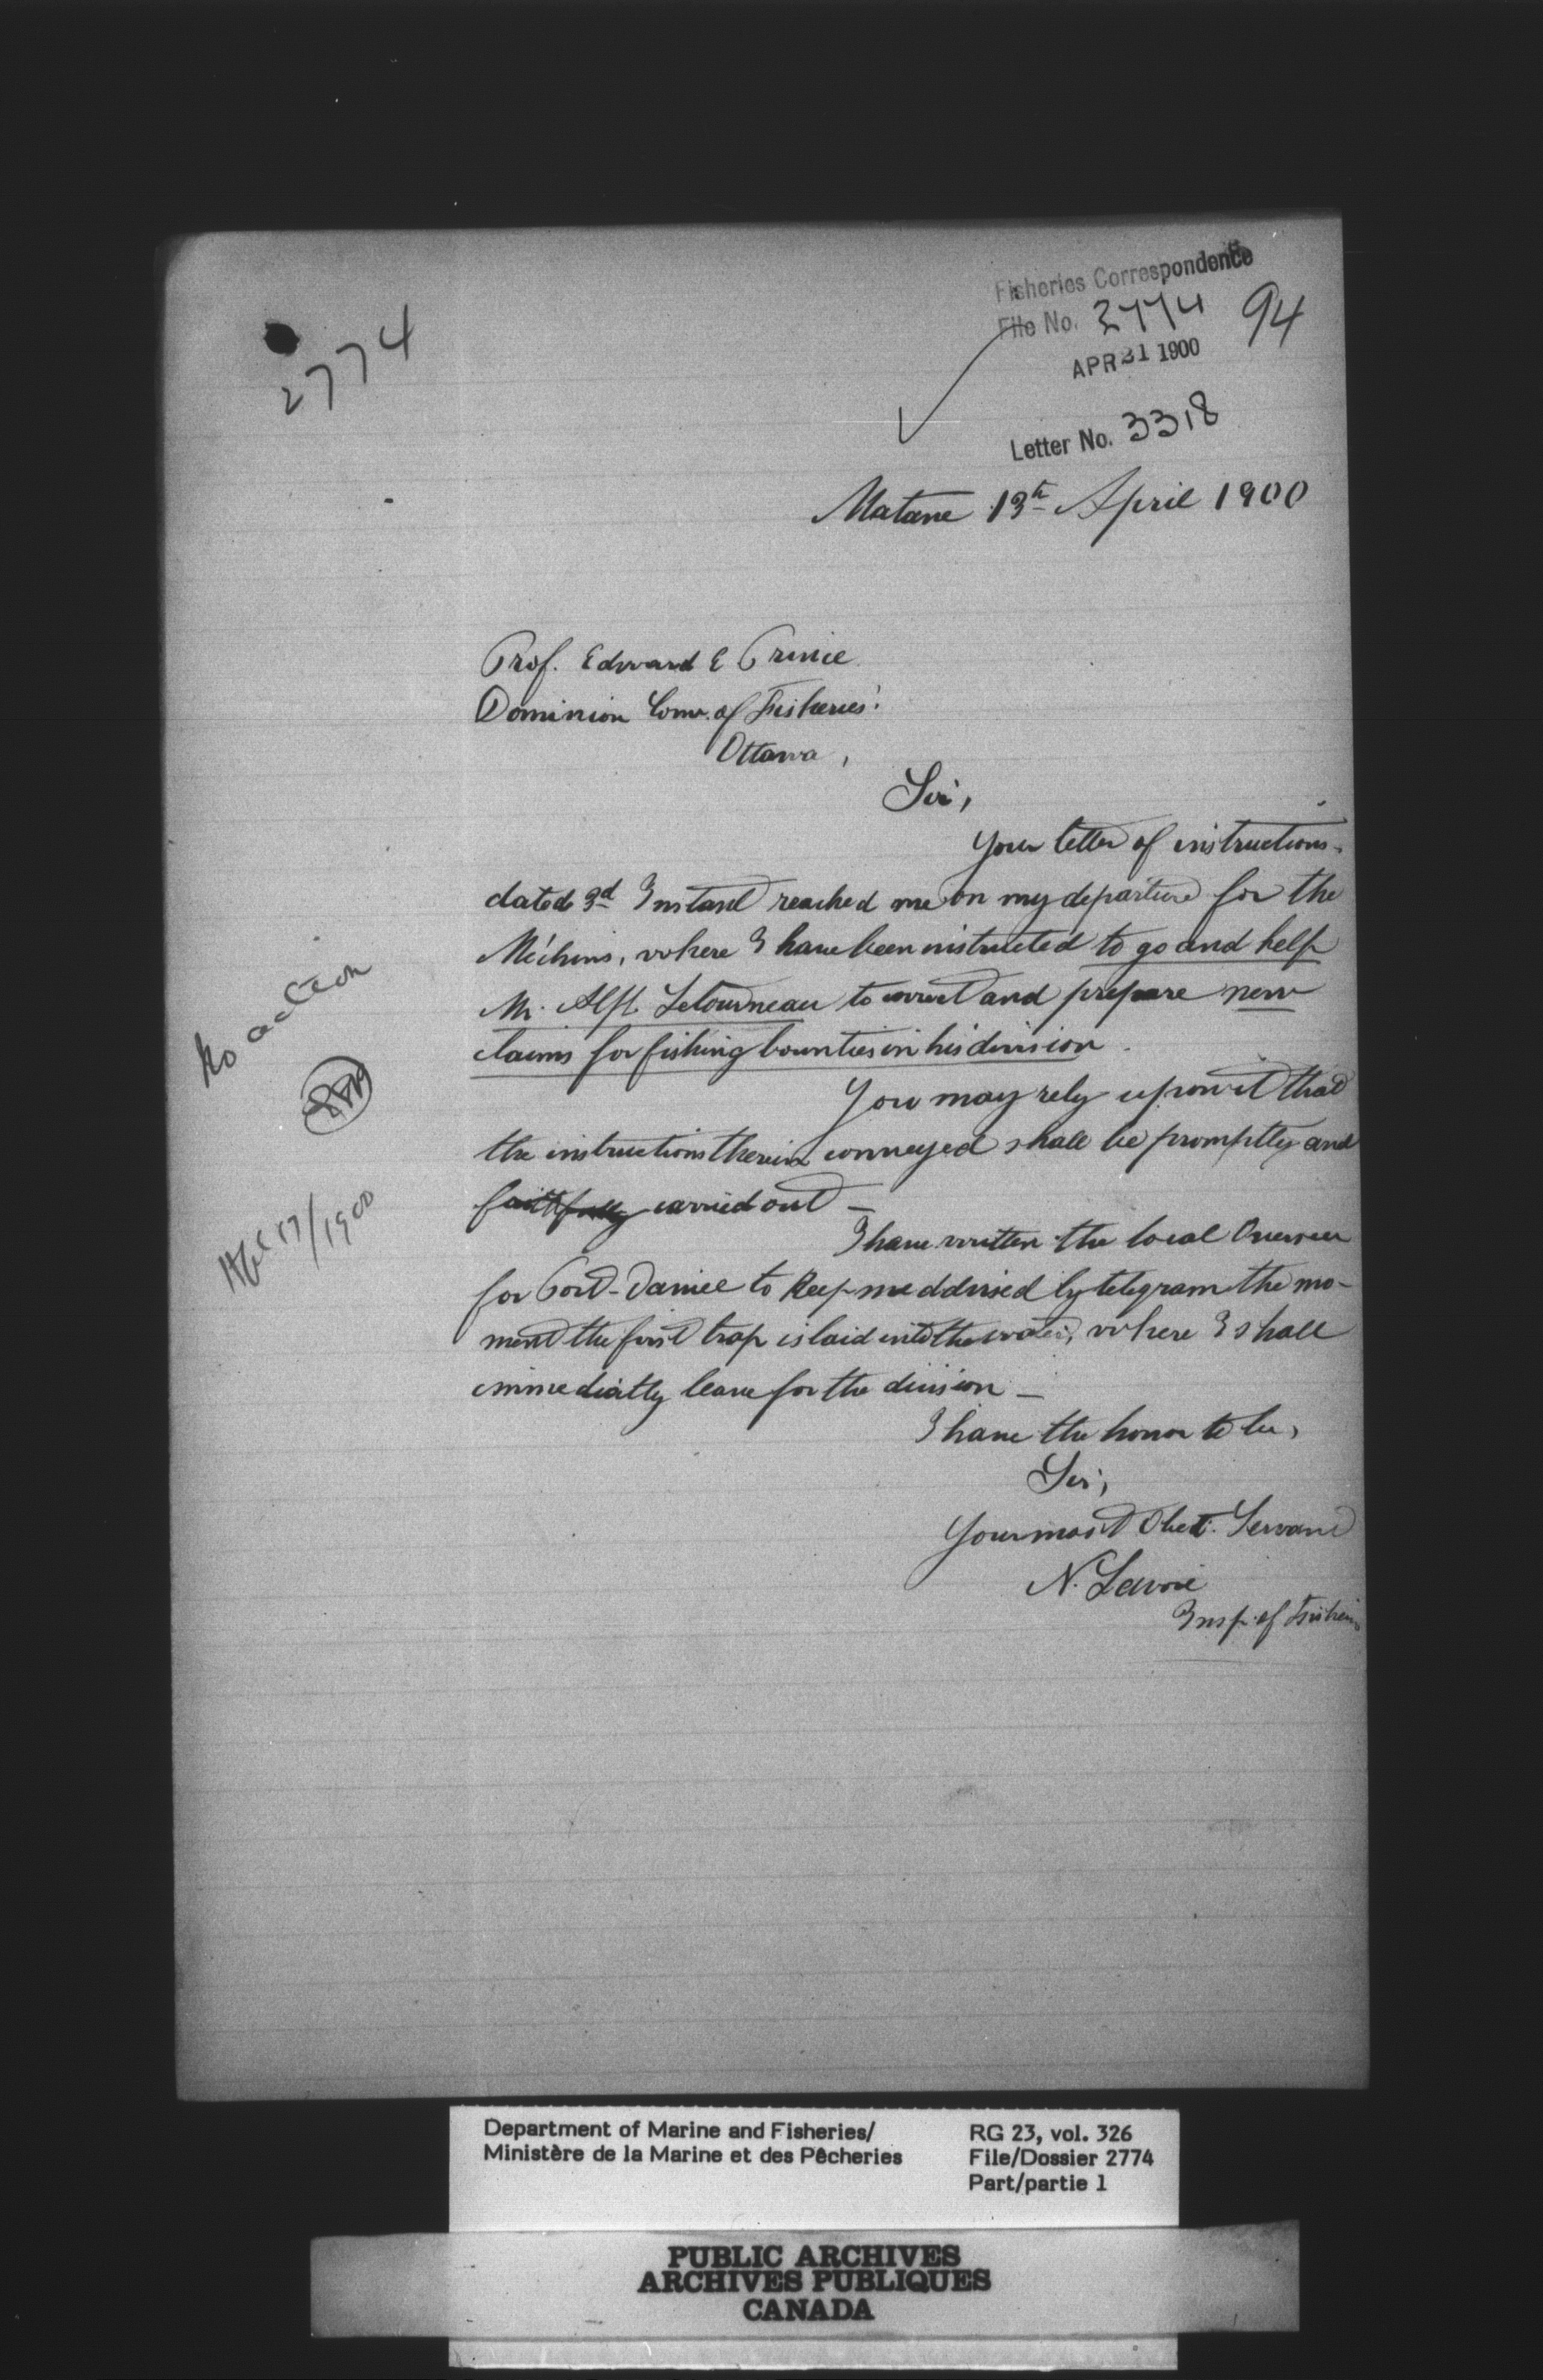 2774
Fisheries Correspondence
File No. 2774 94
APR 21 1900
Letter No. 3318
Matane 13th April 1900
Prof. Edward E Prince
Dominion Comr. of Fisheries
Ottawa,
Sir,
Your letter of instructions
dated 3d Instant reached me on my departure for the
Méchins, where I have been instructed to go and help
Mr. Alft Letourneau to correct and prepare new
claims for fishing bounties in his division.
You may rely upon it that
the instructions therein conveyed shall be promptly and
faithfully carried out —
I have written the local Overseer
for Port-Daniel to keep me addvised by telegram the mo-
ment the first trap is laid into the water, where I shall
immediatly leave for the division —
I have the honor to be,
Sir,
Your most Obedt. Servant
N. Lavoie
Insp. of Fisheries
No action
17/1900
Department of Marine and Fisheries/
Ministère de la Marine et des Pêcheries
RG 23, vol. 326
File/Dossier 2774
Part/partie 1
PUBLIC ARCHIVES
ARCHIVES PUBLIQUES
CANADA